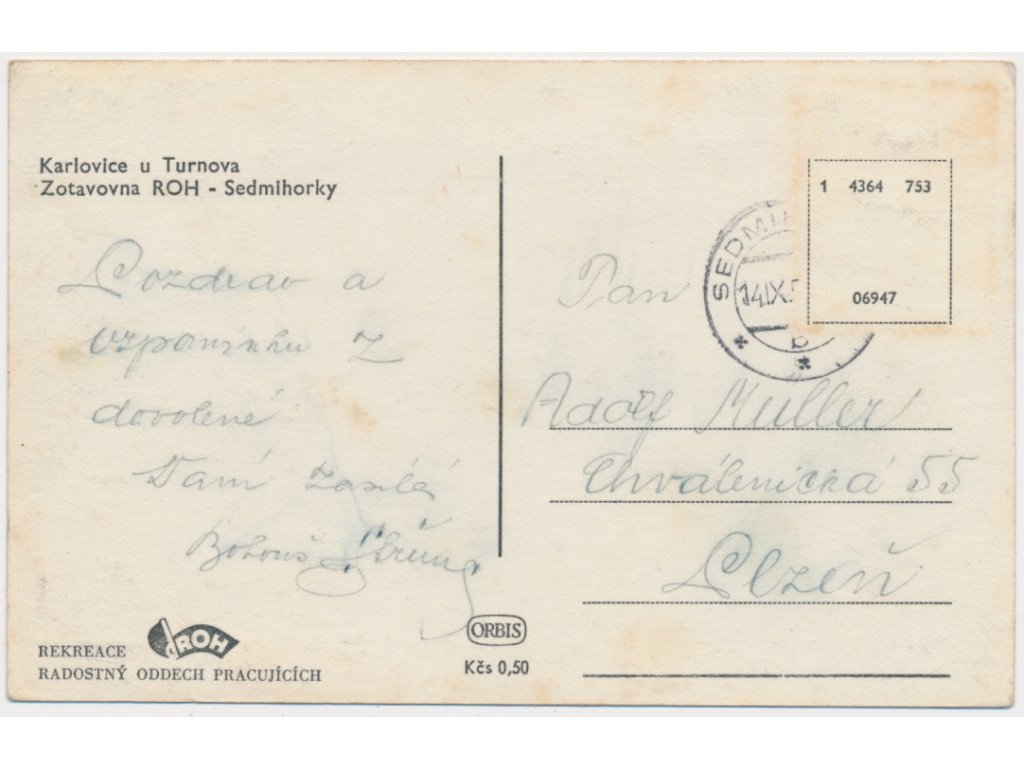 Karlovice u Turnova
Zotavovna ROH - Sedmihorky
Pozdrav a
vzpomínku z
dovolené
Vám zasílá
Bohouš
REKREACE ROH
RADOSTNÝ ODDECH PRACUJÍCÍCH
ORBIS
Kčs 0,50
1 4364 753
06947
14.IX.5
b
Pan
Adolf Muller
Chválenická 55
Plzeň